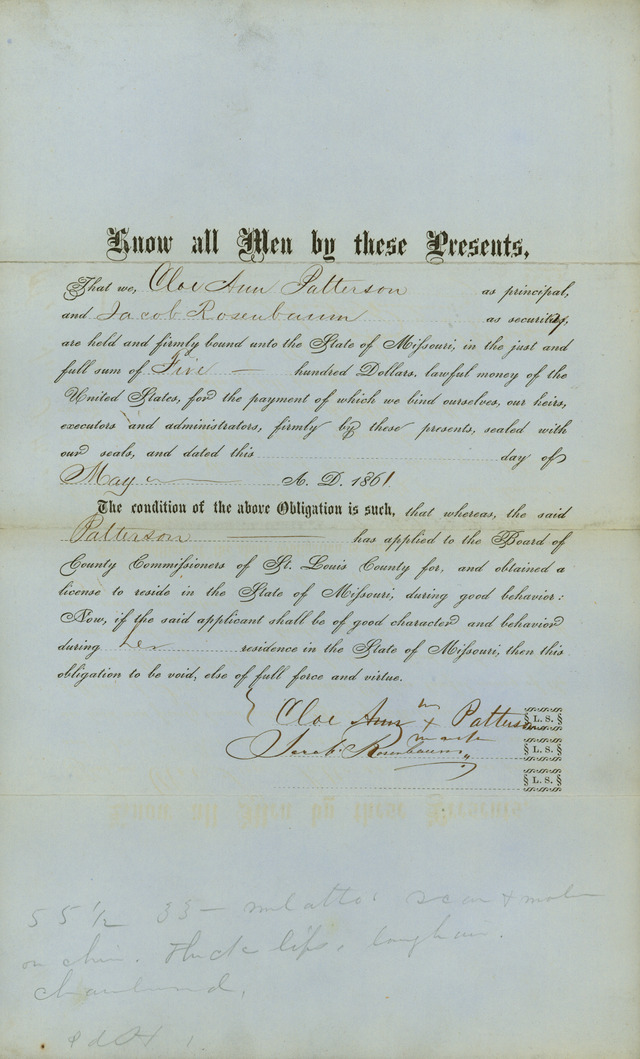 Know all Men by these Presents,
That we, Cloe Ann Patterson as principal,
and Jacob Rosenbaum as security,
are held and firmly bound unto the State of Missouri, in the just and
full sum of Five — hundred Dollars, lawful money of the
United States, for the payment of which we bind ourselves, our heirs,
executors and administrators, firmly by these presents, sealed with
our seals, and dated this day of
May A. D. 1861.
The condition of the above Obligation is such, that whereas, the said
Patterson — has applied to the Board of
County Commissioners of St. Louis County for, and obtained a
license to reside in the State of Missouri, during good behavior:
Now, if the said applicant shall be of good character and behavior
during her residence in the State of Missouri, then this
obligation to be void, else of full force and virtue.
Cloe Ann x Patterson L. S.
mark
Jacob Rosenbaum L. S.
L. S.
5 5 1/2 33 — mulatto. scar & mole
on chin. Thick lips.